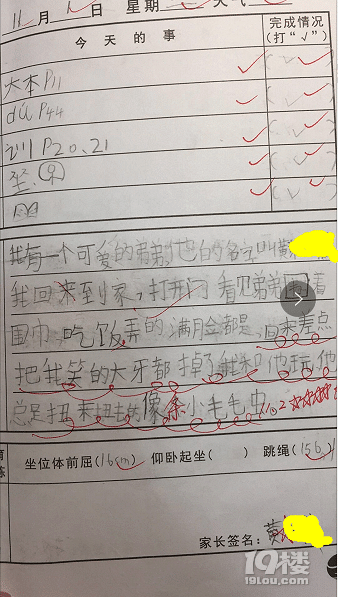 11月1日 星期 天气
今天的事
完成情况
(打“√”)
大本P11
dú P44
训P20、21
(√)
(√)
(√)
(√)
(√)
我有一个可爱的弟弟他的名字叫黄
我回来到家,打开门看见弟弟围着
围巾,吃饭弄的满脸都是,后来差点
把我笑的大牙都掉了我和他玩他
总是扭来扭去像条小毛毛虫
坐位体前屈(16cm) 仰卧起坐( ) 跳绳(156)
家长签名:黄
19楼
19lou.com